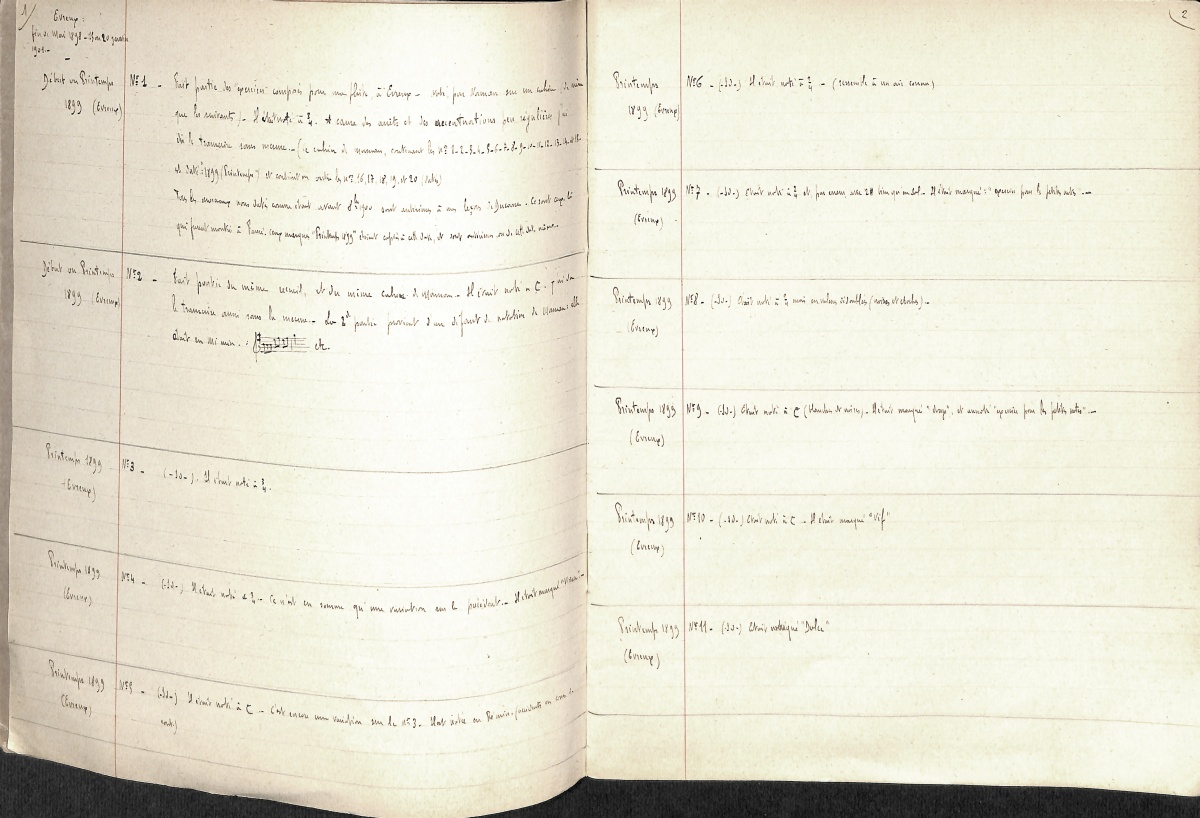 1
Evreux :
fin de Mai 1898 - 
1901.-
Début ou Printemps
1899 (Evreux)
Nº 1 - Fait partie des exercices composés pour ma flûte à Evreux - noté par Maman sur un cahier (de même
que les suivants) - Il était noté à 3/4. A cause des arrêts et des accentuations peu régulières j'ai
dû le transcrire sans mesure. - (Le cahier de Maman, contenant les nos 1-2-3-4-5-6-7-8-9-10-11-12-13-14-
et daté "1899 (Printemps)" et contient en outre les nos 16, 17, 18, 19, et 20 (datés)
Tous les morceaux non datés comme étant avant 8bre 1900 sont antérieurs à mes leçons d'
qui furent montrés à ceux marqués "Printemps 1899" étaient à cette date, et sont antérieurs ou de cette date même.-
Début ou Printemps
1899 (Evreux)
Nº 2 - Fait partie du même recueil, et du même cahier de Maman - Il était noté à C - J'ai dû
le transcrire aussi sans la mesure. - La 2de partie provient d'un défaut de notation de Maman : elle
était en mi min. : etc.
Printemps 1899
(Evreux)
Nº 3 - (-Id-). Il était noté à 3/4.
Printemps 1899
(Evreux)
Nº 4 - (-Id-) Il était noté à 3/4 - Ce n'est en somme qu'une variation sur le précédent. - Il était marqué
Printemps 1899
(Evreux)
Nº 5 - (-Id-) Il était noté à C - C'est encore une variation sur le nº 3 - en Ré min.
2
Printemps
1899 (Evreux)
Nº 6 - (-Id-) Il était noté à 3/4 - (ressemble à un air connu)
Printemps 1899
(Evreux)
Nº 7 - (-Id-) Etait noté à 3/4 et par erreur avec 2# bien qu'en sol - Il était marqué : "exercice pour les petites notes" -
Printemps 1899
(Evreux)
Nº 8 - (-Id-) Etait noté à 3/4 mais en valeurs doubles (noires et croches) -
Printemps 1899
(Evreux)
Nº 9 - (-Id-) Etait noté à C (blanches et noires) - Il était marqué et annoté "exercice pour les petites notes" -
Printemps 1899
(Evreux)
Nº 10 - (-Id-) Etait noté à C - Il était marqué "Vif"
Printemps 1899
(Evreux)
Nº 11 - (-Id-) Etait marqué "Dolce"